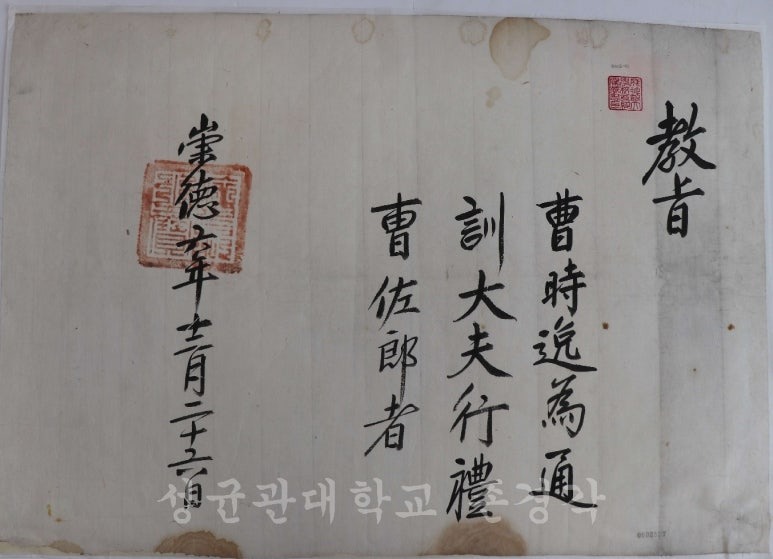 教旨
曹時逸為通
訓大夫行禮
曹佐郎者
崇德六年十二月二十六日
성균관대학교 존경각